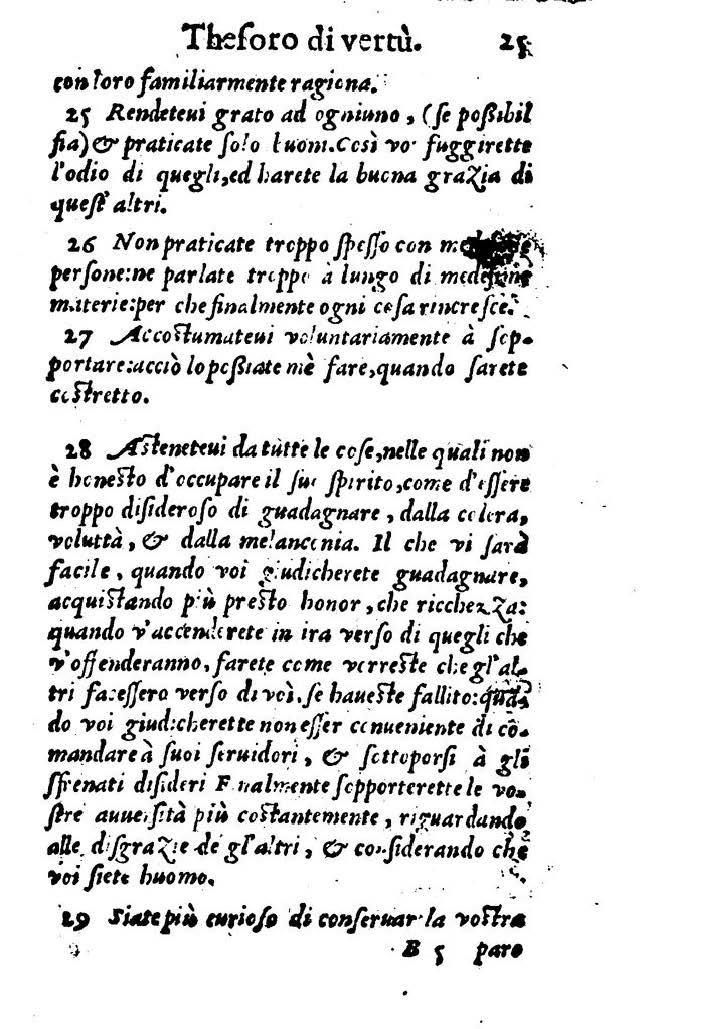 Theſoro di vertù. 25
con loro familiarmente ragiona.
25 Rendeteui grato ad ogniuno, (ſe poßibil
ſia) & praticate ſolo buoni. Coſì vo fuggirette
l'odio di quegli, ed harete la buona grazia di
queſt' altri.
26 Non praticate troppo ſpeſſo con
perſone: ne parlate troppo à lungo di medeſime
materie: per che finalmente ogni coſa rincreſce.
27 Accoſtumateui voluntariamente à ſop-
portare: acciò lo poßiate mè fare, quando ſarete
coſtretto.
28 Aſteneteui da tutte le coſe, nelle quali non
è honeſto d'occupare il ſuo ſpirito, come d'eſſere
troppo diſideroſo di guadagnare, dalla colera,
voluttà, & dalla melanconia. Il che vi ſarà
facile, quando voi giudicherete guadagnare,
acquiſtando più preſto honor, che ricchezza:
quando v'accenderete in ira verſo di quegli che
v'offenderanno, farete come vorreſte che gl'al-
tri faceſſero verſo di voi, ſe haueſte fallito: quā-
do voi giudicherette non eſſer conueniente di cō-
mandare à ſuoi ſeruidori, & ſottoporſi à gli
sfrenati diſideri Finalmente ſopporterette le vo-
ſtre auuerſità più coſtantemente, riguardando
alle diſgrazie de gl'altri, & conſiderando che
voi ſiete huomo.
29 Siate più curioſo di conſeruar la voſtra
B 5 paro